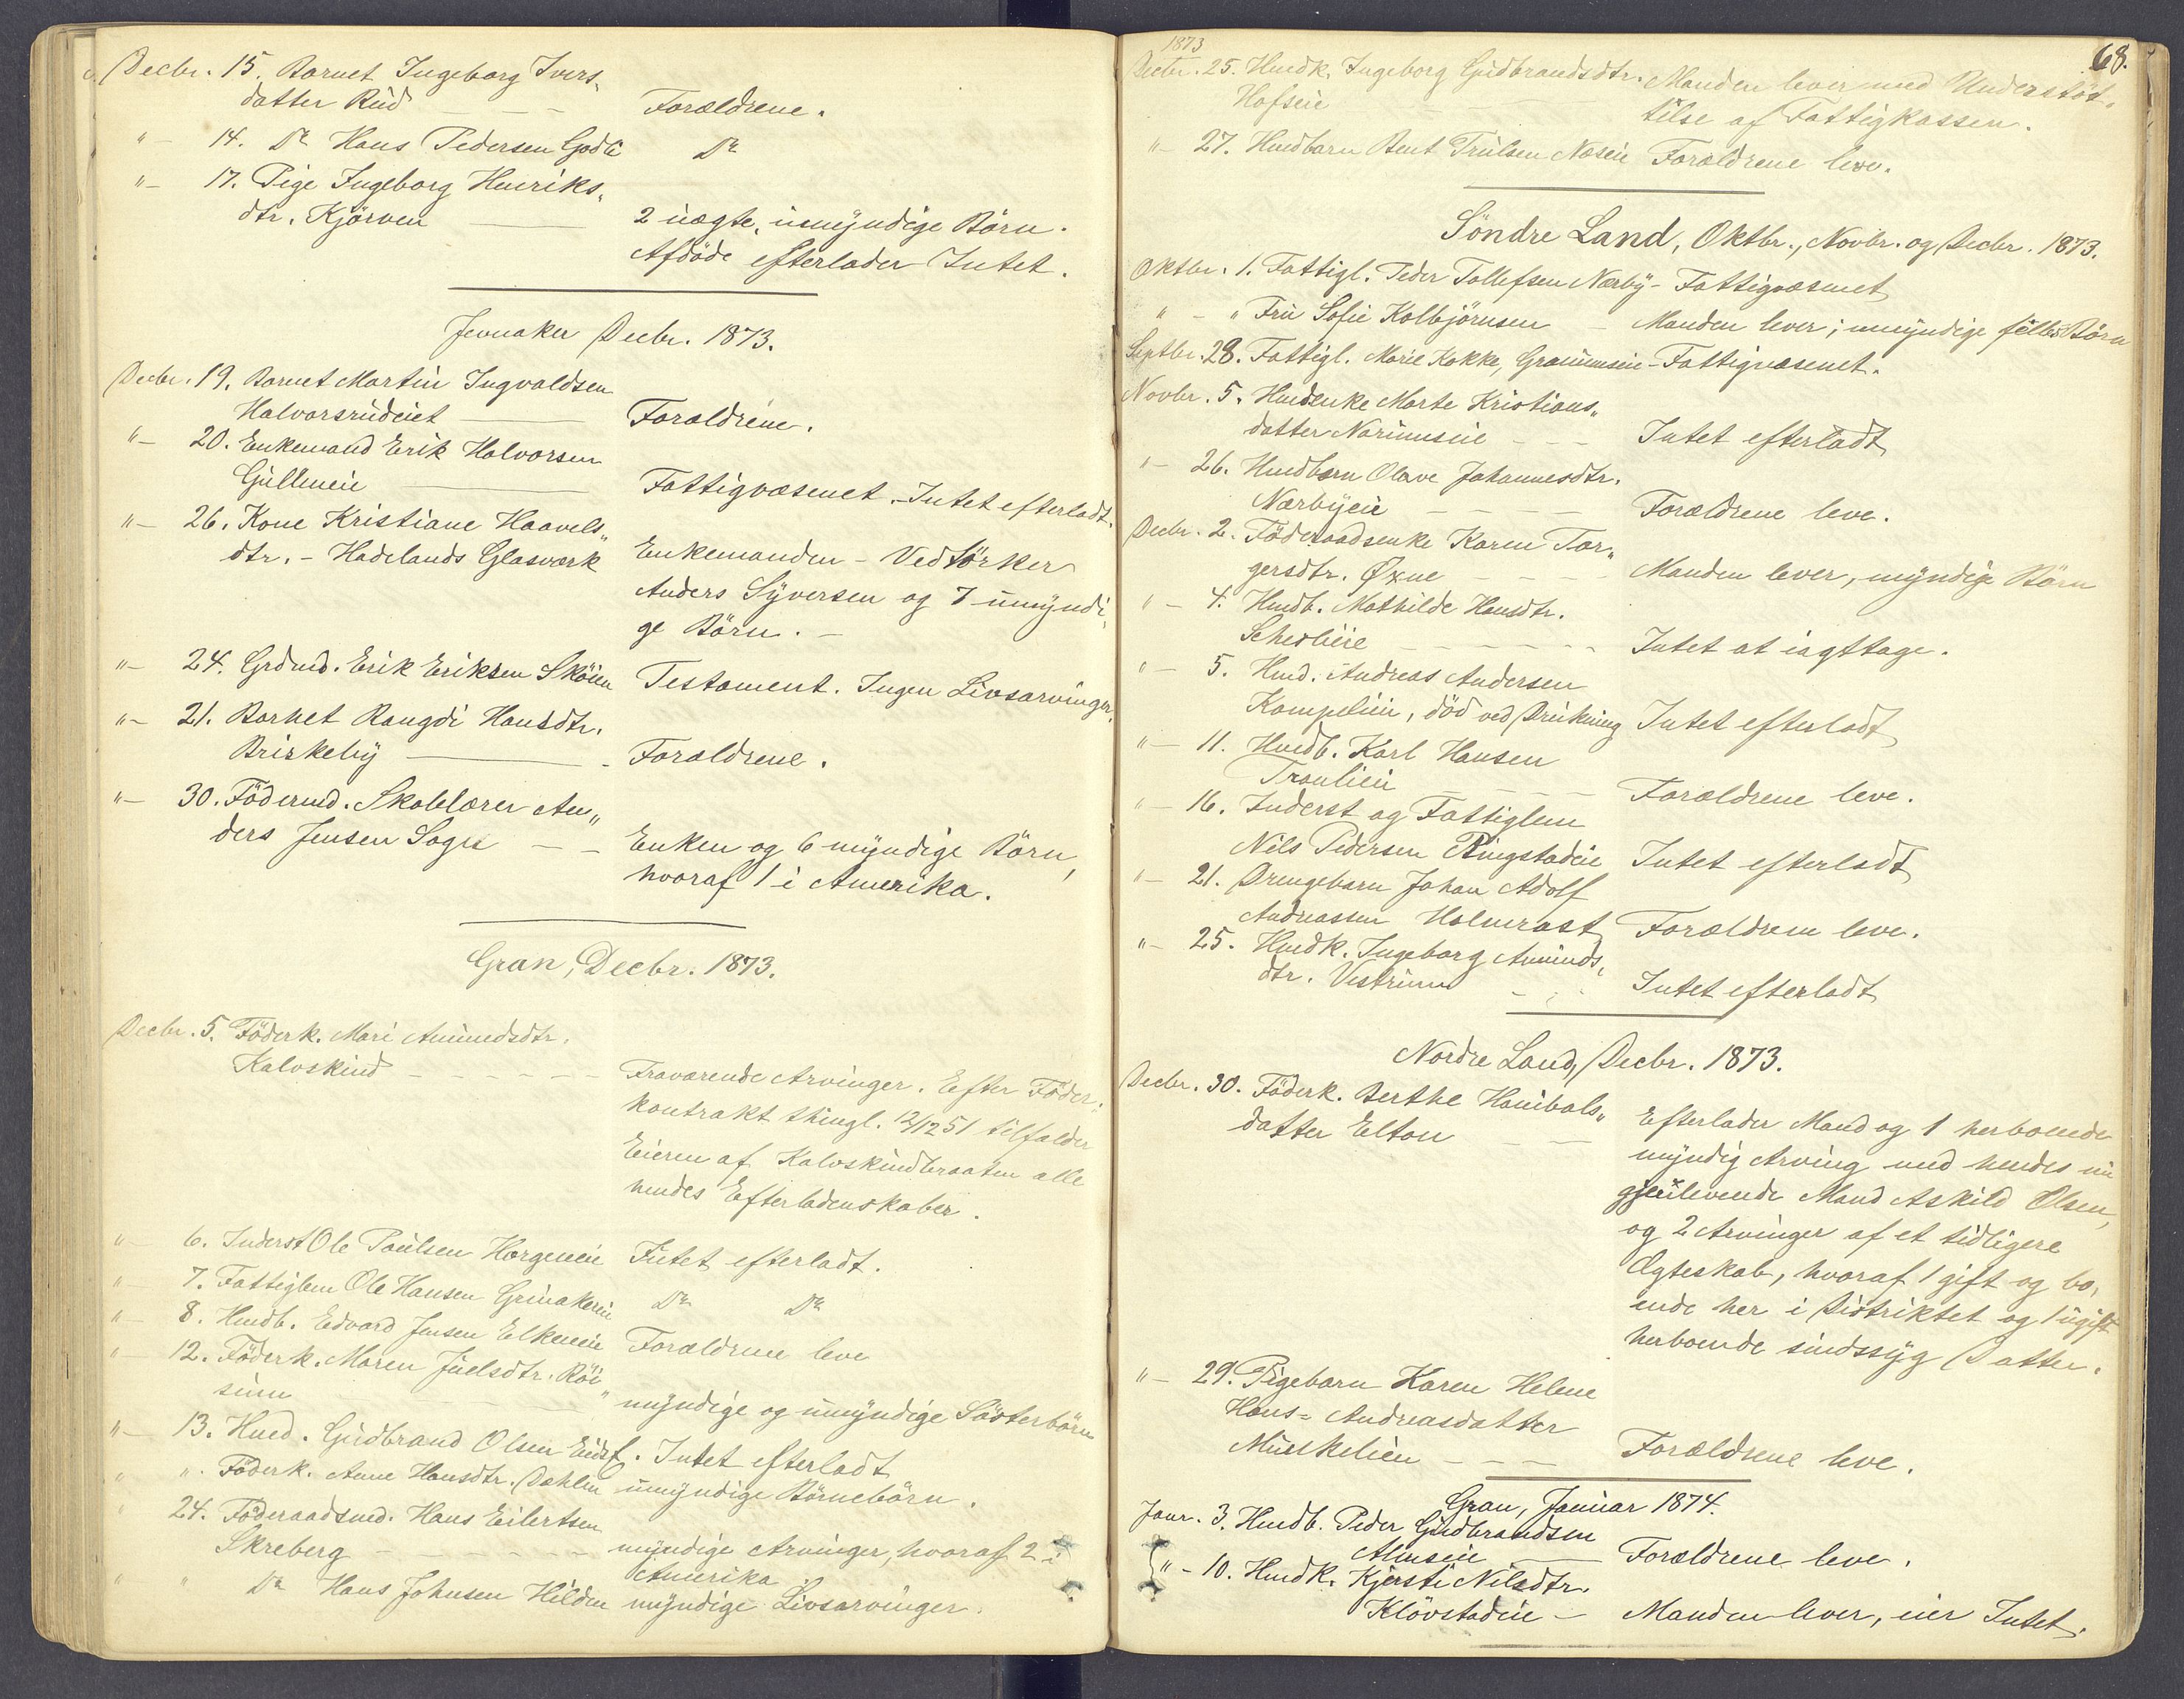 Decbr. 15. Barnet Ingeborg Ivers„
datter Rud — — — Forældrene.
"— 14. Do Hans Pedersen Godli Do
"— 17. Pige Ingeborg Henriks„
dtr. Kjörven — 2 uægte, umyndige Börn.
Afdöde efterlader Intet.
Jevnaker Decbr. 1873.
Decbr. 19. Barnet Martin Ingvaldsen
Halvorsrudeiet — Forældrene.
"— 20. Enkemand Erik Halvorsen
Gulleneie — Fattigvæsenet. - Intet efterladt.
"— 26. Kone Kristiane Haavels„
dtr. - Hadelands Glasværk Enkemanden - Vedtörker
Anders Syversen og 7 umyndi„
ge Börn. -
"— 24. Grdmd. Erik Eriksen Sköien Testament. Ingen Livsarvinger.
"— 21. Barnet Rangdi Hansdtr.
Briskeby — Forældrene.
"— 30. Födermd. Skolelærer An„
ders Jensen Sogn — — Enken og 6 myndige Börn,
hvoraf 1 i Amerika.
Gran, Decbr. 1873.
Decbr. 5. Föderk. Mari Amundsdtr.
Kalvskind — — — Fraværende Arvinger. Efter Föder„
kontrakt thingl. 12/12 51 tilfalder
Eieren af Kalvskindbraaten alle
hendes Efterladenskaber.
"— 6. Inderst Ole Paulsen Horgeneie Intet efterladt.
"— 7. Fattiglem Ole Hansen Grinakereie Do Do
"— 8. Hmdb. Edvard Jensen Elkeneie Forældrene leve
"— 12. Föderk. Maren Juelsdtr. Röi„
sum — — — myndige og umyndige Sösterbörn
"— 13. Hmd. Gudbrand Olsen Intet efterladt
" ". Föderk. Anne Hansdtr. Dæhlen umyndige Börnebörn.
" 24. Föderaadsmd. Hans Eilertsen
Skreberg — — — myndige Arvinger, hvoraf 2 i
Amerika
" " Do Hans Johnsen Hilden myndige Livsarvinger.
68.
1873
Decbr. 25. Hmdk. Ingeborg Gudbrandsdtr. Manden lever med Understöt„
Hofseie — — — telse af Fattigkassen.
"— 27. Hmdbarn Bent Trulsen Næseie Forældrene leve.
Söndre Land, Oktbr., Novbr. og Decbr. 1873.
Oktbr. 1. Fattigl. Peder Tollefsen Nærby - Fattigvæsenet
" - " Fru Sofie Kolbjörnsen - Manden lever; umyndige fælles Börn
Septbr. 28. Fattigl. Marie Kokke, Granumseie - Fattigvæsenet.
Novbr. 5. Hmdenke Marte Kristians„
datter Narumseie — — — Intet efterladt
"— 26. Hmdbarn Olave Johannesdtr.
Nærbyeie — — — Forældrene leve.
Decbr. 2. Föderaadsenke Karen Tor„
gersdtr. Öxne — — Manden lever, myndige Börn
"— 4. Hmdb. Mathilde Hansdtr.
— — — Intet at iagttage.
"— 5. Hmd. Andreas Andersen
Kampelien, död ved Drukning Intet efterladt
"— 11. Hmdb. Karl Hansen
Tranlieie — — — Forældrene leve.
"— 16. Inderst og Fattiglem
Nils Pedersen Ringstadeie Intet efterladt
"— 21. Drengebarn Johan Adolf
Andreassen Holmrast Forældrene leve.
"— 25. Hmdk. Ingeborg Amunds„
dtr. Vestrum — — Intet efterladt
Nordre Land, Decbr. 1873.
Decbr. 30. Föderk. Berthe Hanibals„
datter Elton — — Efterlader Mand og 1 herboende
myndig Arving med hendes nu
gjenlevende Mand Askild Olsen,
og 2 Arvinger af et tidligere
Ægteskab, hvoraf 1 gift og bo„
ende her i Distriktet og 1 ugift
herboende sindssyg Datter.
"— 29. Pigebarn Karen Helene
Hans= Andreasdatter
Muskelien — — — Forældrene leve.
Gran, Januar 1874.
Janr. 3. Hmdb. Peder Gudbrandsen
Almseie — Forældrene leve.
"- 10. Hmdk. Kjersti Nilsdtr.
Klövstadeie — Manden lever, eier Intet.